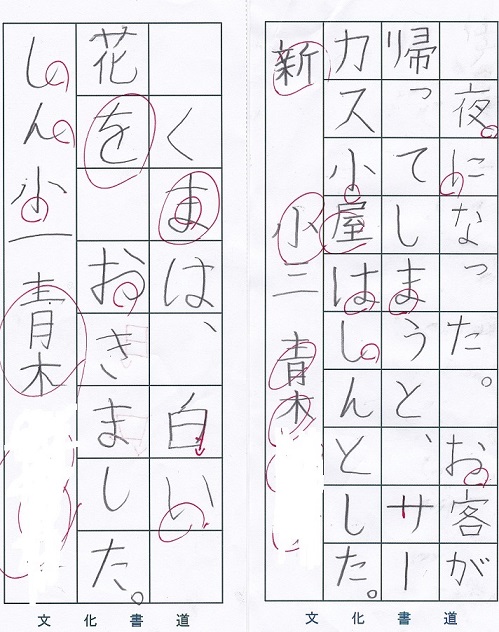 夜になった。お客が
帰ってしまうと、サー
カス小屋はしんとした。
新 小二 青木
文化書道
くまは、白い
花をおきました。
しん 小一 青木
文化書道